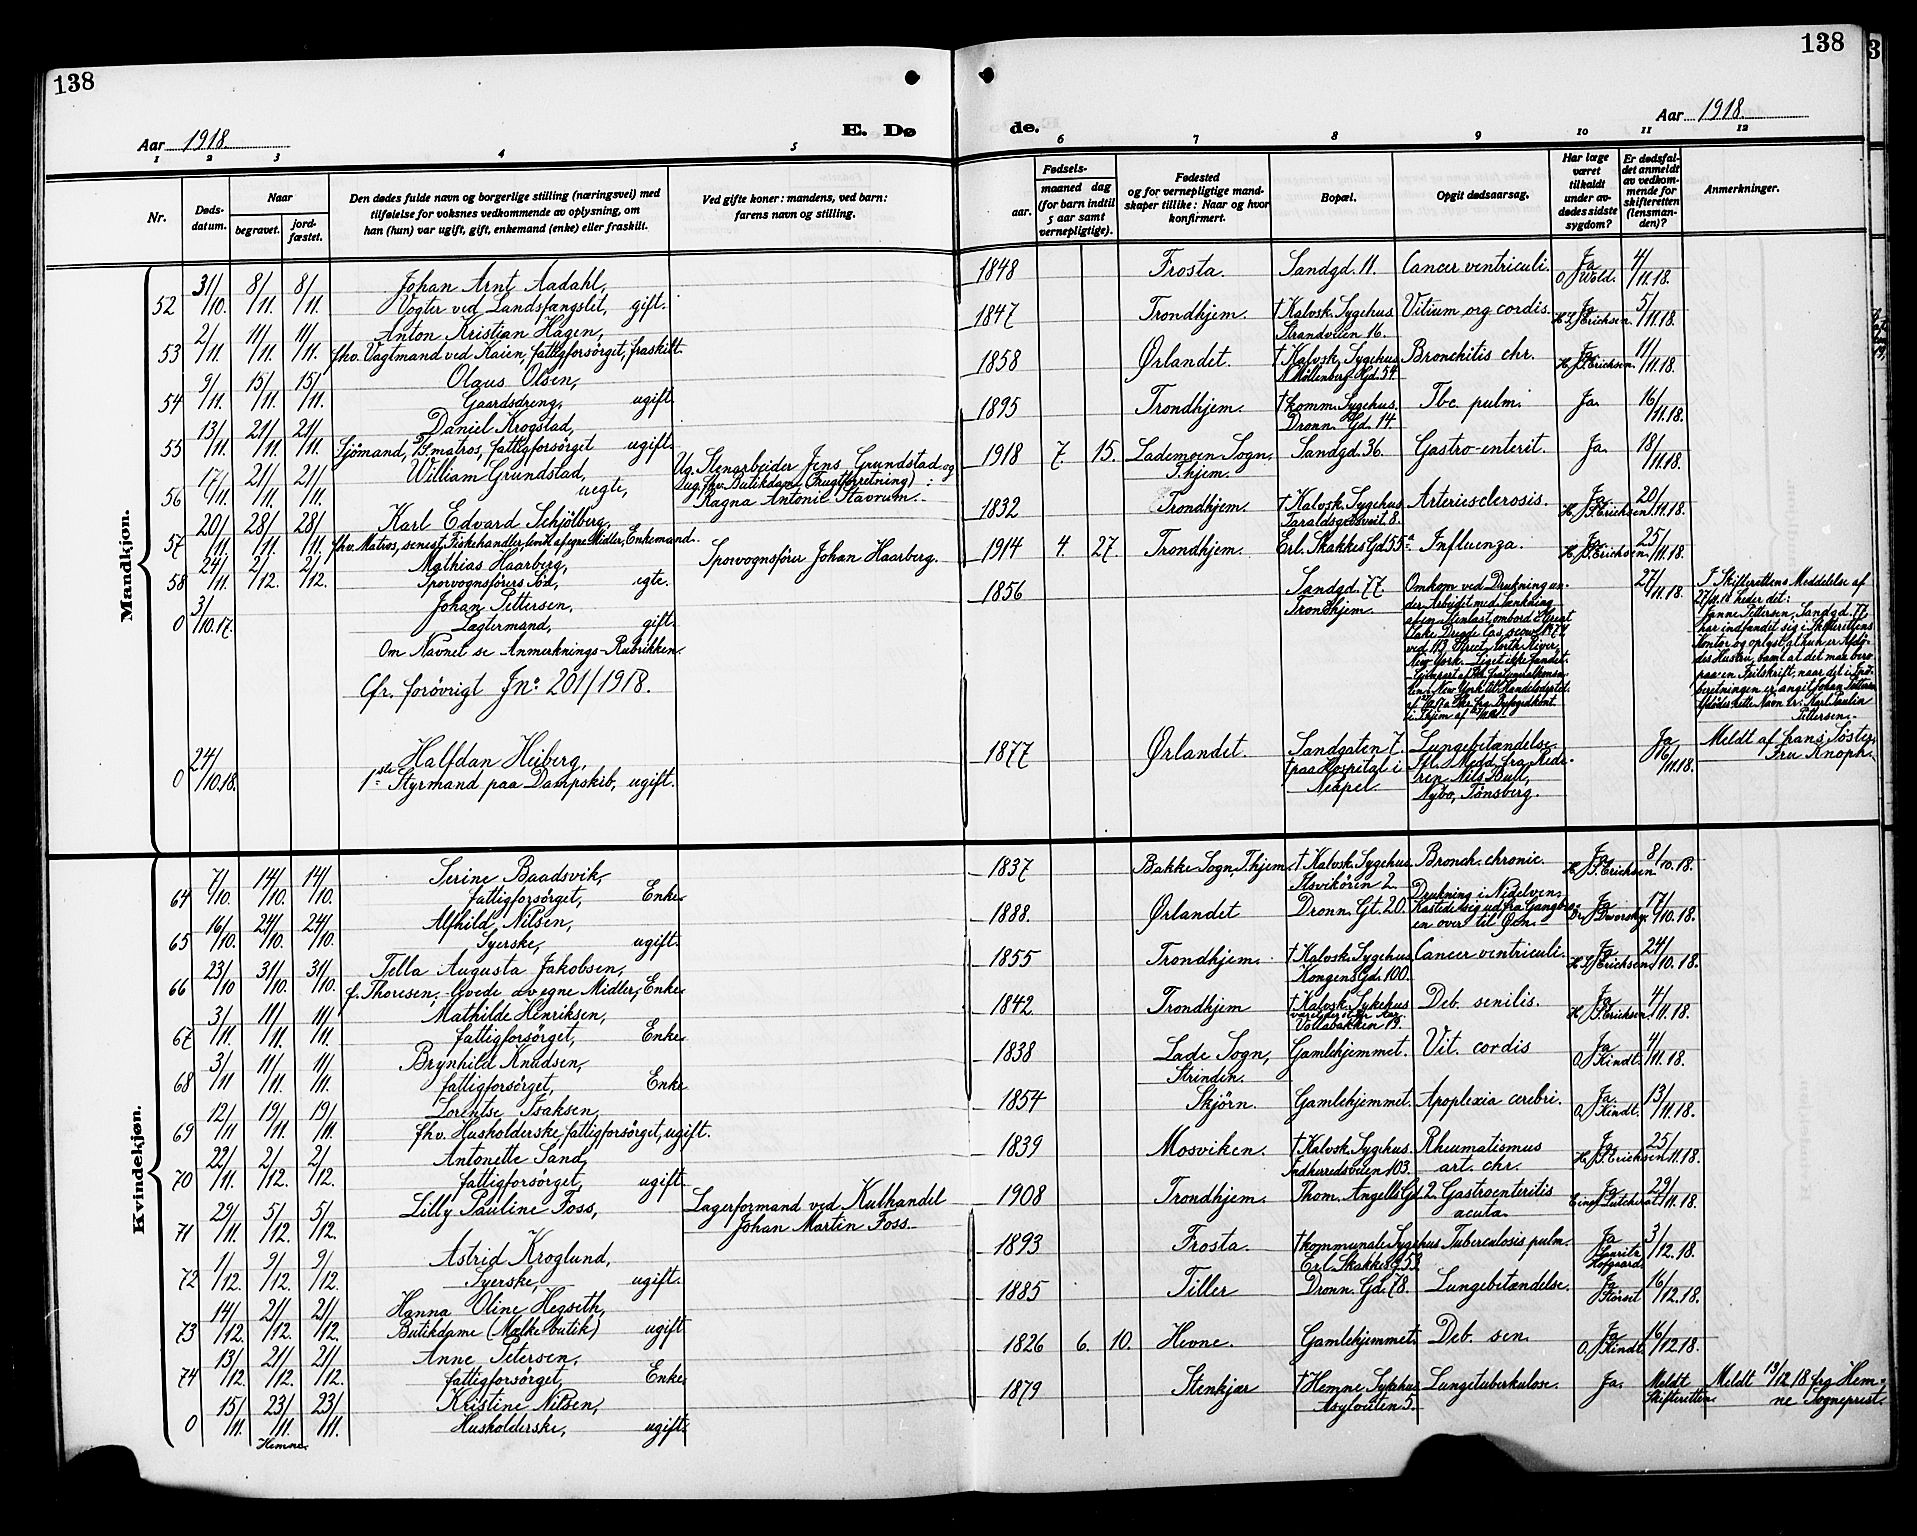 138
138
Aar 1918.
E. Dø
de.
Aar 1918.
1 2 3 4 5 6 7 8 9 10 11 12
Nr.
Døds-
datum.
Naar
begravet.
jord-
fæstet.
Den dødes fulde navn og borgerlige stilling (næringsvei) med
tilføielse for voksnes vedkommende av oplysning, om
han (hun) var ugift, gift, enkemand (enke) eller fraskilt.
Ved gifte koner: mandens, ved barn:
farens navn og stilling.
Fødsels-
aar.
maaned dag
(for barn indtil
5 aar samt
vernepligtige).
Fødested
og for vernepligtige mand-
skaper tillike: Naar og hvor
konfirmert.
Bopæl.
Opgit dødsaarsag.
Har læge
været
tilkaldt
under av-
dødes sidste
sygdom?
Er dødsfal-
det anmeldt
av vedkom-
mende for
skifteretten
(lensman-
den)?
Anmerkninger.
Mandkjøn.
52 31/10. 8/11. 8/11. Johan Arnt Aadahl,
Vogter ved Landsfængslet, gift.
1848 Frosta. Sandgd. 11. Cancer ventriculi. Ja O. Wold. 4/11.18.
53 2/11. 11/11. 11/11. Anton Kristian Hagen,
fhv. Vagtmand ved Kaien, fattigforsörget, fraskilt.
1847 Trondhjem. † Kalvsk. Sygehus Vitium org. cordis. Ja 5/11.18.
Strandveien 16. H. J. Erichsen.
54 9/11. 15/11. 15/11. Olaus Olsen,
Gaardsdreng, ugift.
1858 Ørlandet. † Kalvsk. Sygehus Bronchitis chr. Ja 11/11.18.
N. Möllenberg Gd. 54 H. J. Erichsen.
55 13/11. 21/11. 21/11. Daniel Krogstad,
Sjömand, matros, fattigforsörget ugift.
1895 Trondhjem. † komm. Sygehus. Tbc. pulm. Ja. 16/11.18.
Dronn. Gd. 14.
56 17/11. 21/11. 21/11. William Grundstad,
uegte,
Ug. Stenarbeider Jens Grundstad og
ug. fhv. Butikdame (Frugtforretning):
Ragna Antonie Stavrum.
1918 7. 15. Lademoen Sogn, Sandgd. 36. Gastro-enterit. Ja. 18/11.18.
T.hjem.
57 20/11. 28/11. 28/11. Karl Edvard Schjölberg,
fhv. Matros, senest Fiskehandler, levde af egne Midler, Enkemand.
1832 Trondhjem. † Kalvsk. Sygehus Arteriesclerosis. Ja 20/11.18.
Taraldsgaardsveit. 8. H. J. Erichsen.
58 24/11. 2/12. 2/12. Mathias Haarberg,
Sporvognsförers Sön, egte.
Sporvognsförer Johan Haarberg.
1914 4. 27 Trondhjem. Erl. Skakkes Gd 55a Influenza. Ja 25/11.18.
H. J. Erichsen.
0 3/10.17. Johan Pettersen,
Lægtermand, gift.
Om Navnet se Anmerknings-Rubrikken.
Cfr. forövrigt Jn: 201/1918.
1856 Sandgd. 77
Trondhjem.
Omkom ved Drukning un-
der Arbeidet med Lænkning
af en Stenlast ombord i Great
Lake Dredge Co's scow 1974
ved 113 Street, North River,
New York. Liget ikke fundet.
27/11.18.
I Skifterettens Meddelelse af
27/11.18 heder det:
Janne Pettersen, Sandgd. 77,
har indfundet sig i Skifterettens
Kontor og oplyst, at hun er Afdö-
des Hustru, samt at det maa bero
paa en Feilskrift, naar det i Ind-
beretningen er angit Johan Pettersen
Afdödes rette Navn er: Karl Paulin
Pettersen.
0 24/10.18. Halfdan Heiberg,
1ste Styrmand paa Dampskib, ugift.
1877 Ørlandet. Sandgaten 7. Lungebetændelse. Ja 16/11.18. Meldt af hans Söster
† paa Hospital i Ifl. Medd. fra Rede- Fru Knoph.
Neapel. ren Nils Bull,
Nybo, Tönsberg.
Kvindekjøn.
64 7/10. 14/10. 14/10. Serine Baadsvik,
fattigforsörget, Enke
1837 Bakke Sogn, T.hjem. † Kalvsk. Sygehus Bronch. chronic. Ja 8/10.18.
Ilsvikören 2. H. J. Erichsen
65 16/10. 24/10. 24/10. Alfhild Nilsen,
Syerske, ugift.
1888. Ørlandet Dronn. Gt. 20. Drukning i Nidelven. Ja 17/10.18.
Kastede sig ud fra Gangbro-
en over til Øen. Dworsky.
66 23/10 31/10. 31/10. Tella Augusta Jakobsen,
f. Thoresen, levede av egne Midler, Enke
1855 Trondhjem. † Kalvsk. Sygehus Cancer ventriculi. Ja 24/10.18.
Kongens Gd. 100. H. J. Erichsen.
67 3/11. 11/11. 11/11. Mathilde Henriksen,
fattigforsörget, Enke
1842 Trondhjem † Kalvsk. Sykehus Deb. senilis. Ja 4/11.18.
Vollabakken 19. H. J. Erichsen.
68 3/11 11/11. 11/11. Brynhild Knudsen,
fattigforsörget, Enke
1838 Lade Sogn, Gamlehjemmet. Vit. cordis Ja 4/11.18.
Strinden. O. Kindt.
69 12/11 19/11. 19/11. Lorentse Isaksen,
fhv. Husholderske, fattigforsörget, ugift.
1854 Skjörn. Gamlehjemmet. Apoplexia cerebri. Ja. 13/11.18.
O. Kindt.
70 22/11. 2/12. 2/12. Antonette Sand,
fattigforsörget, ugift
1839 Mosviken. † Kalvsk. Sygehus. Rheumatismus Ja 25/11.18.
Indherredsveien 103. art. chr. H. J. Erichsen
71 29/11. 5/12. 5/12. Lilly Pauline Foss,
Lagerformand ved Kulhandel
Johan Martin Foss.
1908 Trondhjem. Thom. Angells Gd 2. Gastroenteritis Ja 29/11.18.
acuta.
72 1/12. 9/12. 9/12. Astrid Kroglund,
Syerske, ugift.
1893 Frosta. † kommunale Sygehus Tuberculosis pulm. Ja 3/12.18.
Erl. Skakkes G. 53. Lauritz
Hofgaard.
73 14/12. 21/12. 21/12. Hanna Oline Hegseth,
Butikdame (Melkebutik) ugift
1885 Tiller Dronn. Gd. 78. Lungebetændelse. Ja 16/12.18.
Störset
74 13/12. 21/12. 21/12. Anne Petersen,
fattigforsörget, Enke
1826 6. 10. Hevne. Gamlehjemmet. Deb. sen. Ja 16/12 18.
O. Kindt.
0 15/11. 23/11. 23/11. Kristine Nilsen,
Hemne. Husholderske, ugift.
1879 Stenkjær † Hemne Sykehus Lungetuberkulose. Ja. Meldt Meldt 13/12 18 fra Hem-
Asylveiten 5. Skifteretten. ne Sogneprest.